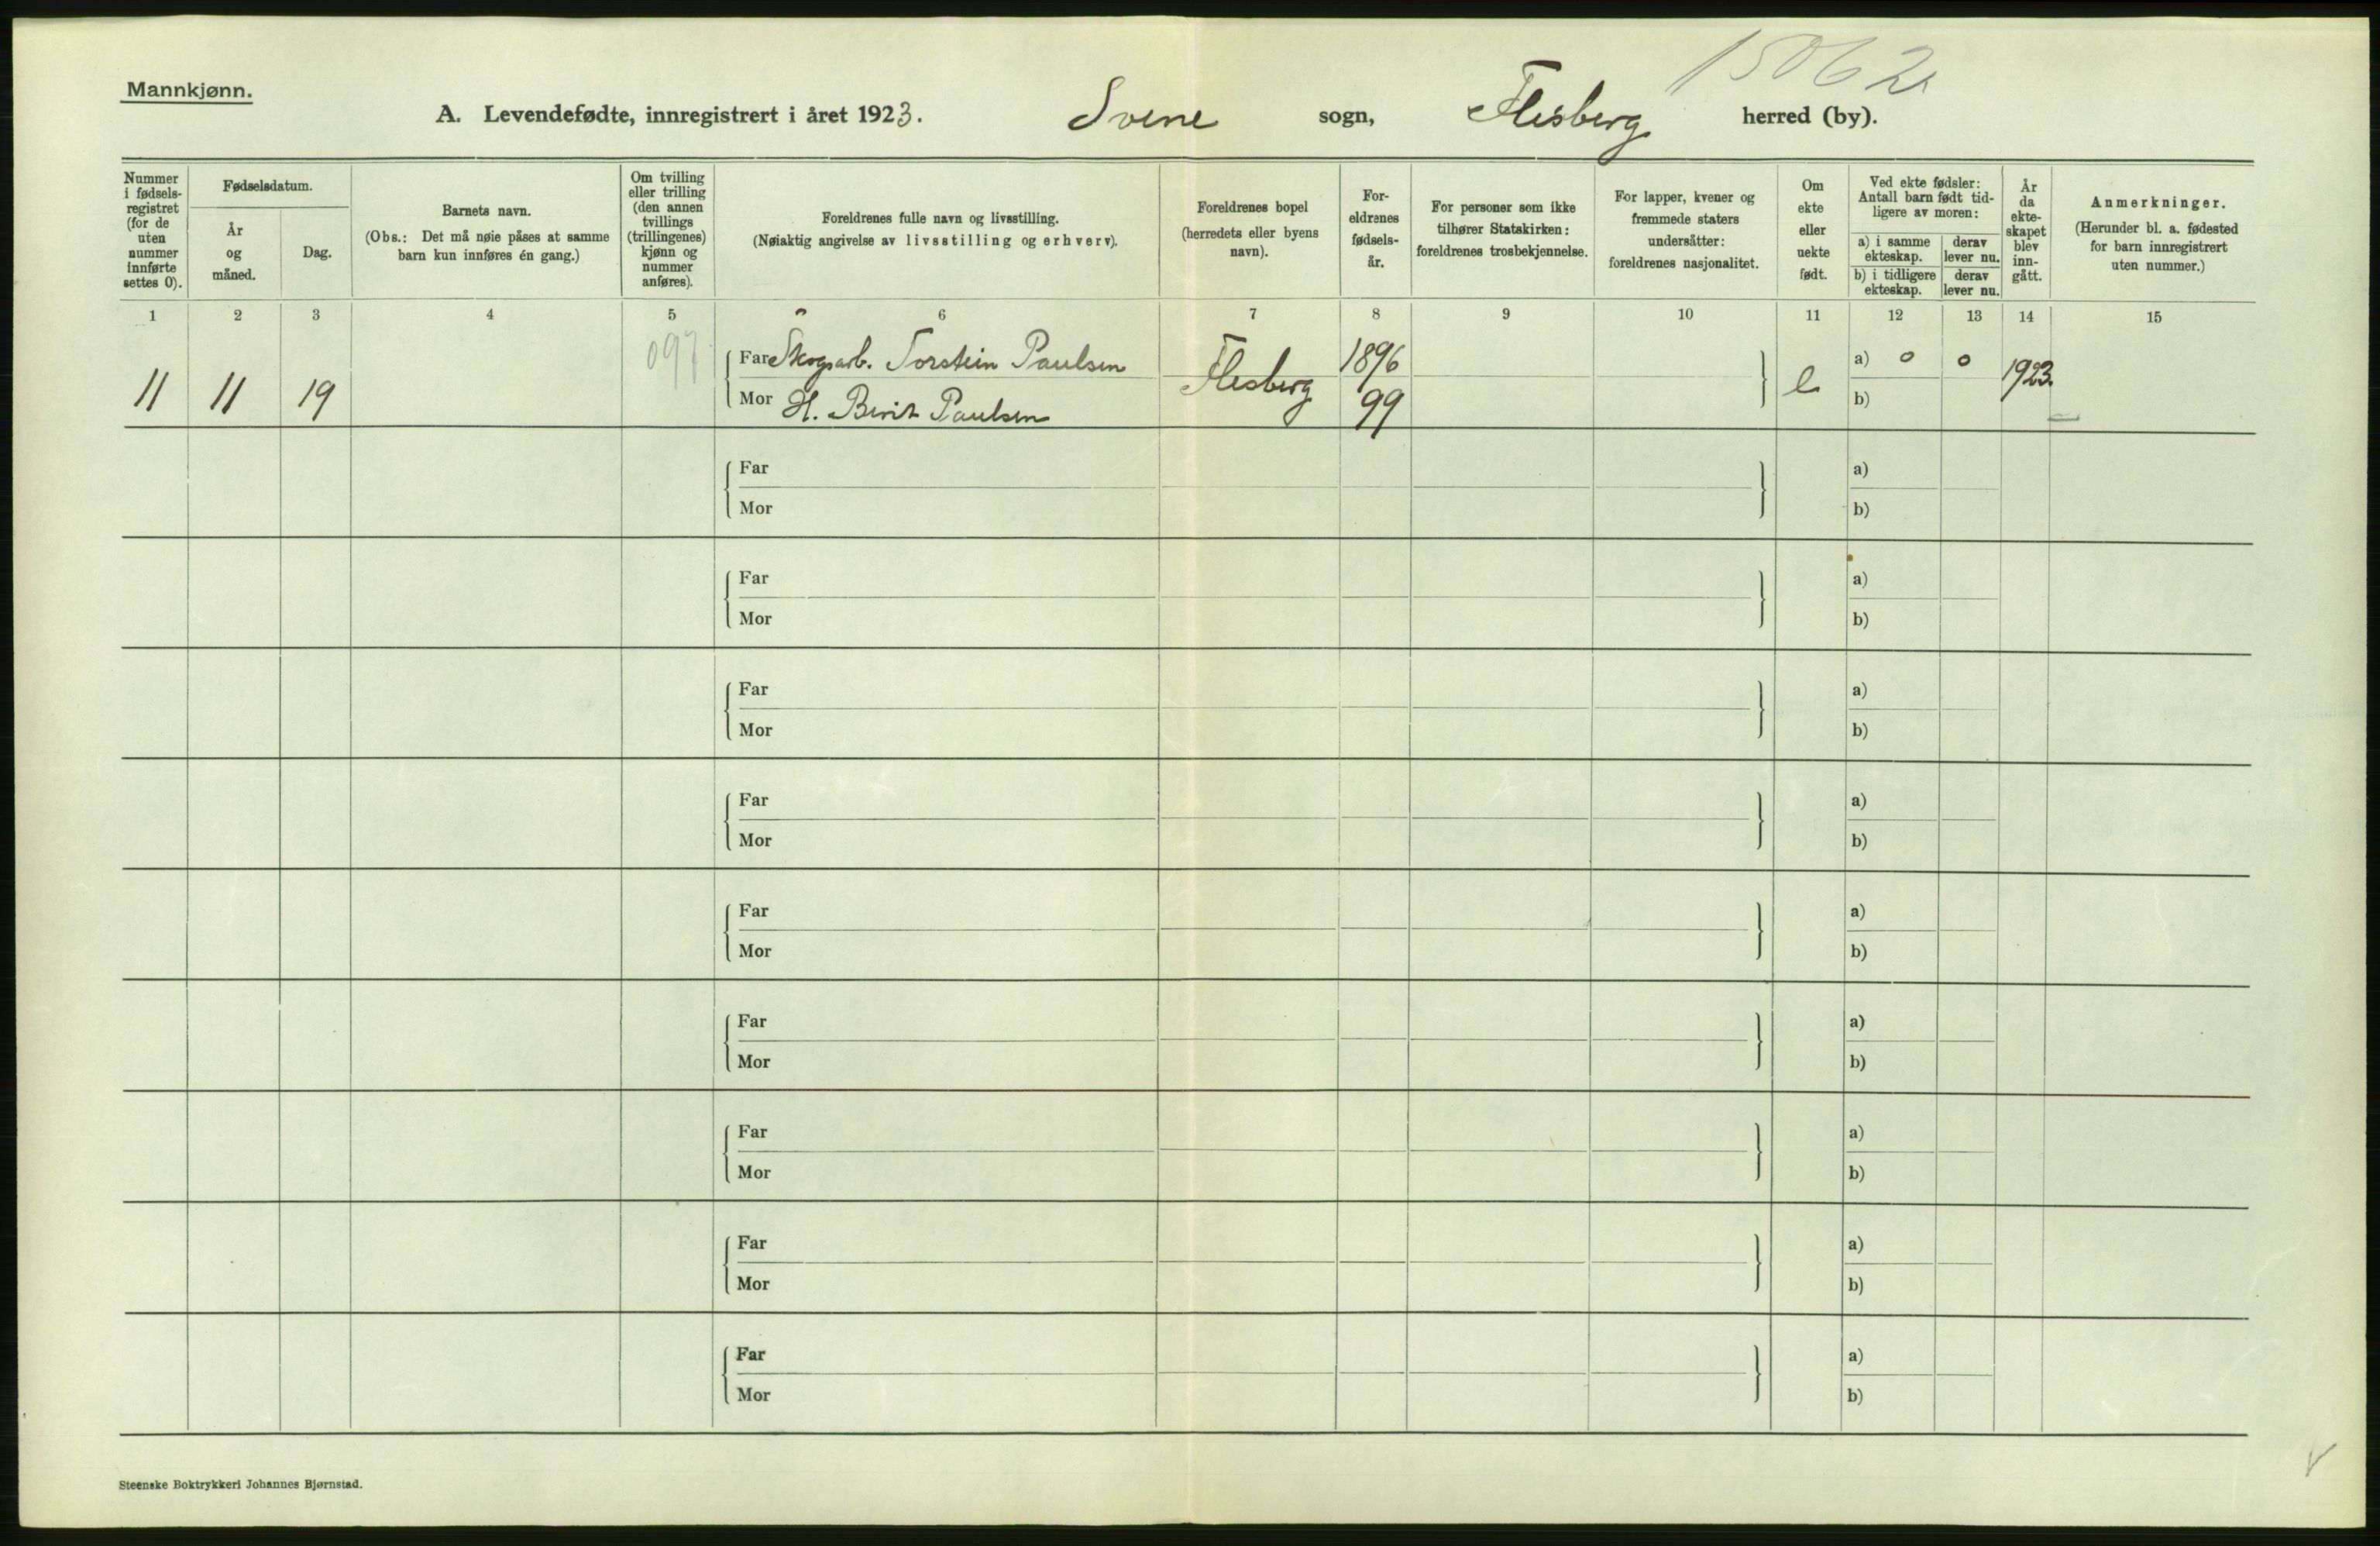 15062
Mannkjønn.
A. Levendefødte, innregistrert i året 1923. Svene sogn, Flesberg herred (by).
Nummer i fødsels-registret (for de uten nummer innførte settes 0).
Fødselsdatum.
År og måned.
Dag.
Barnets navn.
(Obs.: Det må nøie påses at samme barn kun innføres én gang.)
Om tvilling eller trilling (den annen tvillings (trillingenes) kjønn og nummer anføres).
Foreldrenes fulle navn og livsstilling.
(Nøiaktig angivelse av livsstilling og erhverv).
Foreldrenes bopel (herredets eller byens navn).
For-eldrenes fødsels-år.
For personer som ikke tilhører Statskirken: foreldrenes trosbekjennelse.
For lapper, kvener og fremmede staters undersåtter: foreldrenes nasjonalitet.
Om ekte eller uekte født.
Ved ekte fødsler: Antall barn født tid-ligere av moren:
a) i samme ekteskap.
derav lever nu.
b) i tidligere ekteskap.
derav lever nu.
År da ekte-skapet blev inn-gått.
Anmerkninger.
(Herunder bl. a. fødested for barn innregistrert uten nummer.)
1 2 3 4 5 6 7 8 9 10 11 12 13 14 15
097
Far Skogsarb. Torstein Paulsen 1896 a) 0 0
11 11 19 Flesberg e 1923.
Mor H. Berit Paulsen 99 b)
Far a)
Mor b)
Far a)
Mor b)
Far a)
Mor b)
Far a)
Mor b)
Far a)
Mor b)
Far a)
Mor b)
Far a)
Mor b)
Far a)
Mor b)
Far a)
Mor b)
Steenske Boktrykkeri Johannes Bjørnstad.